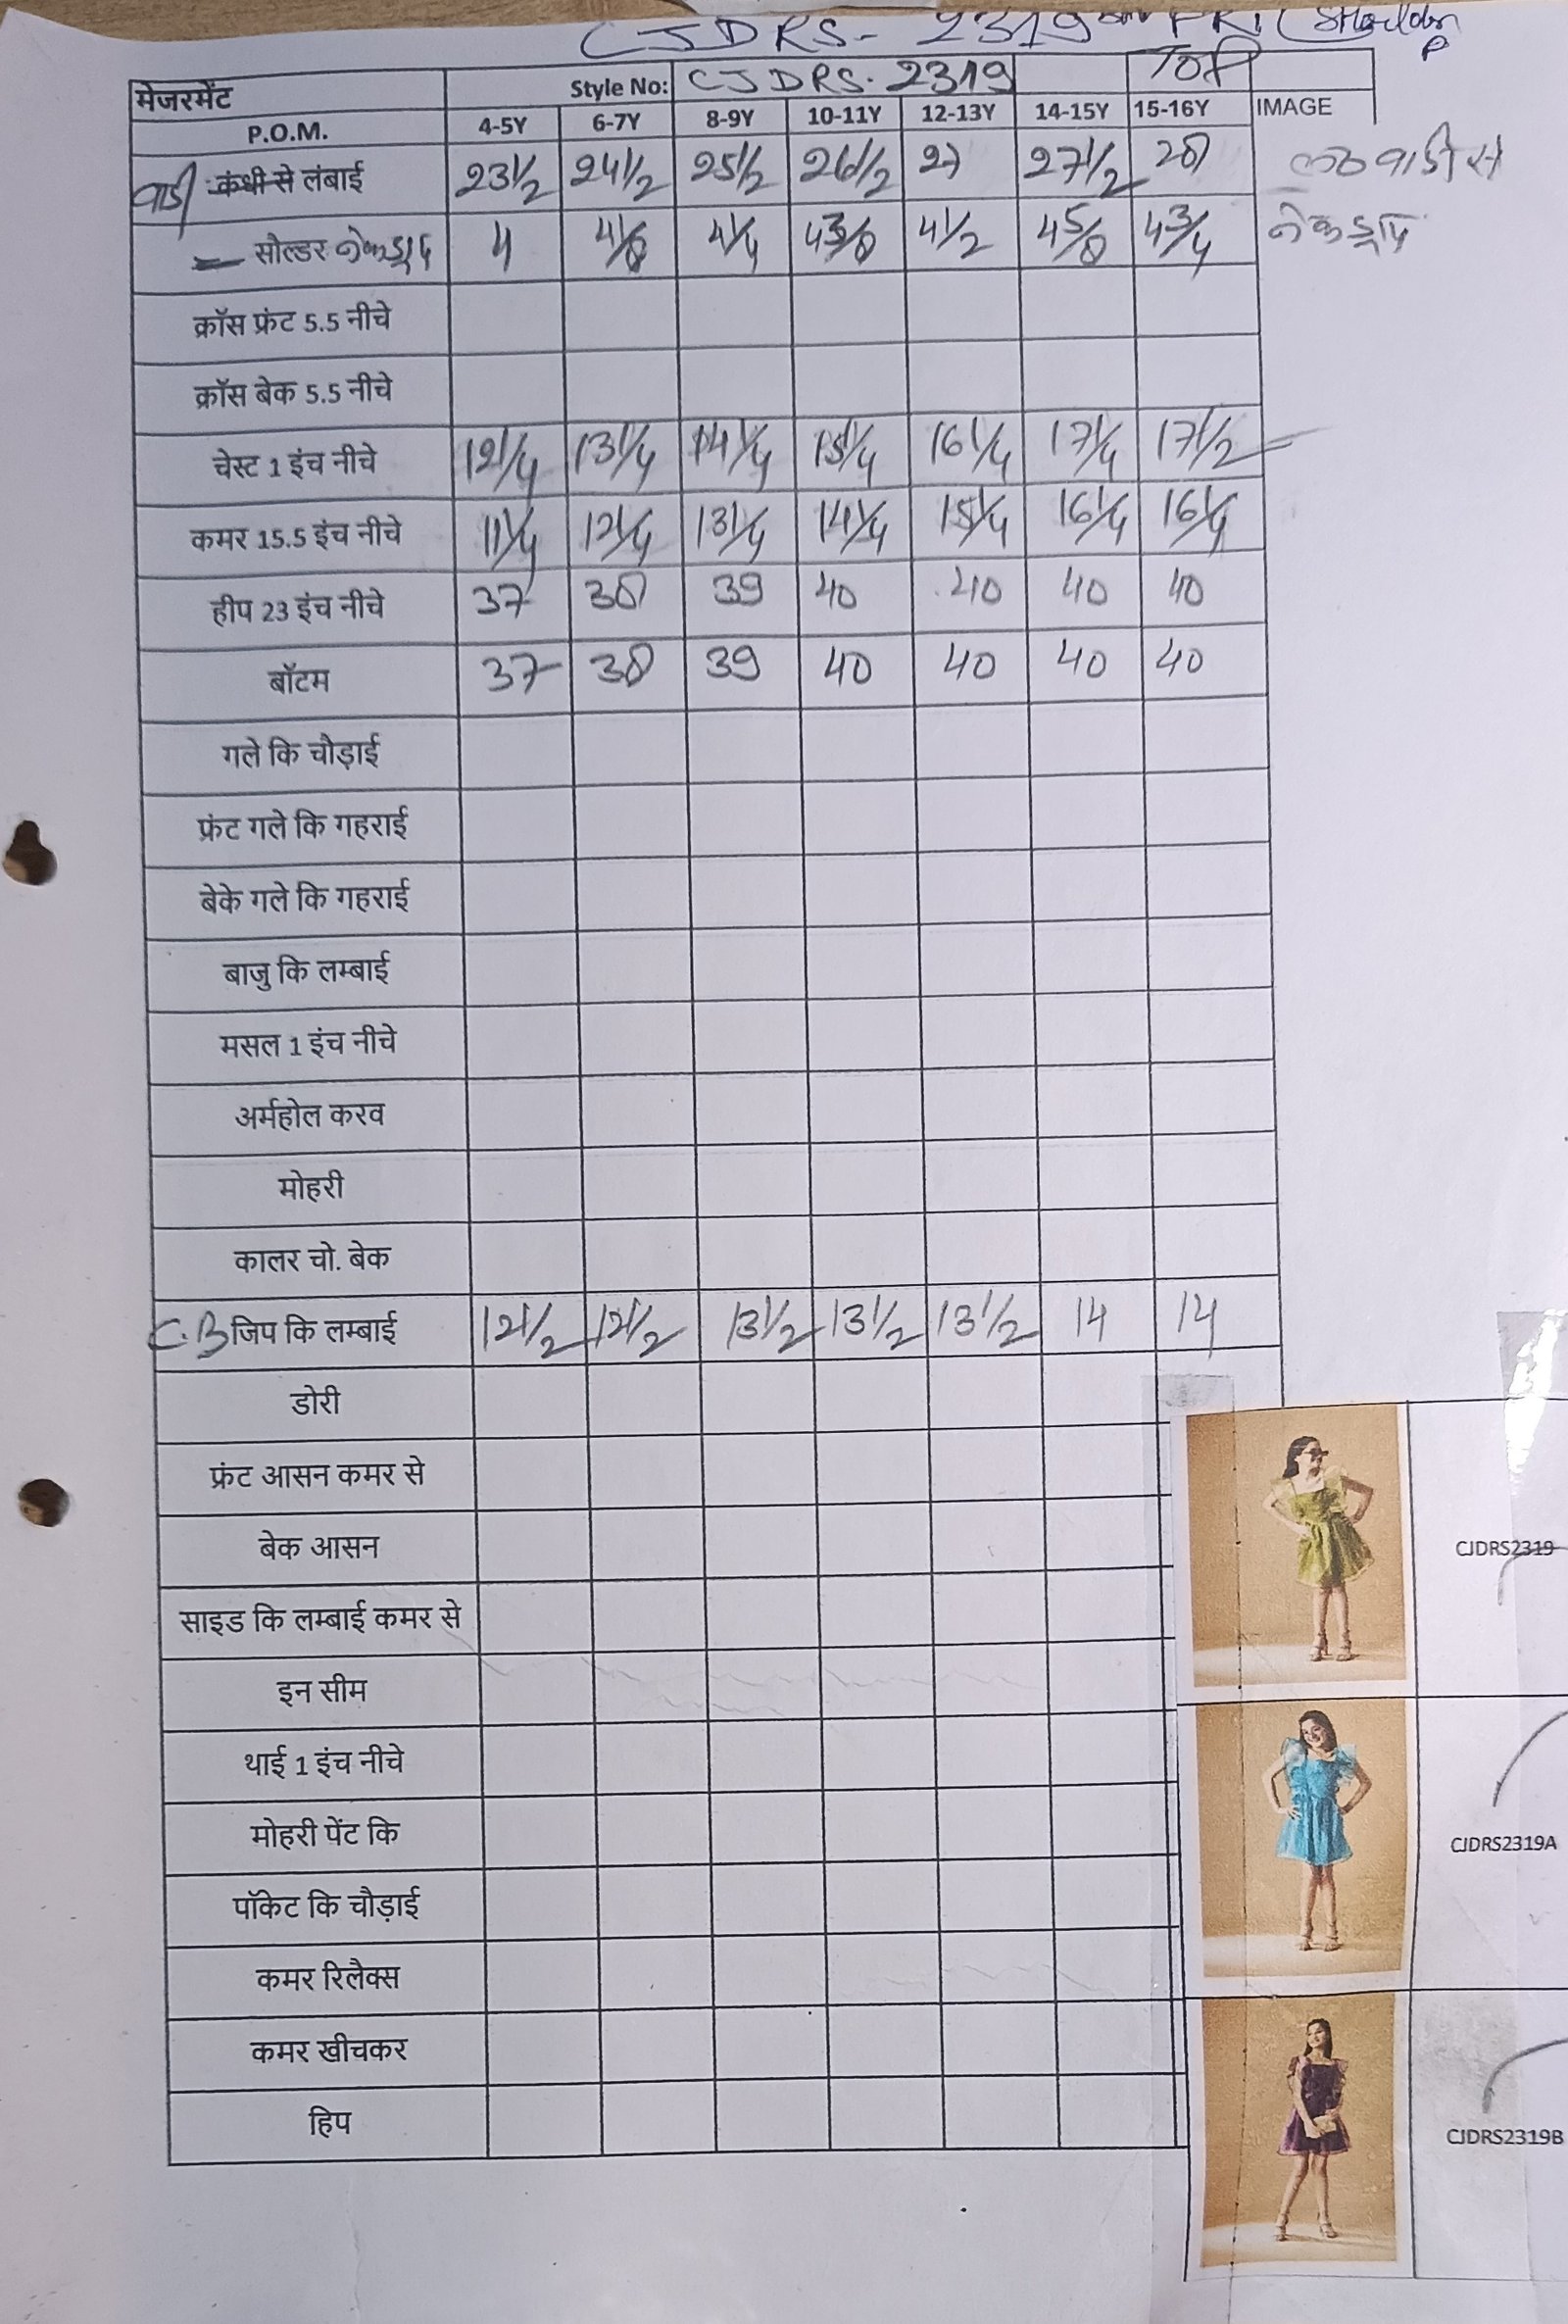 CJDRS- 2319
मेजरमेंट Style No: CJDRS. 2319 TOP
P.O.M. 4-5Y 6-7Y 8-9Y 10-11Y 12-13Y 14-15Y 15-16Y IMAGE
वाडी कंधी से लंबाई 23 1/2 24 1/2 25 1/2 26 1/2 27 27 1/2 28 वाडी से
सौल्डर नेकड्राप 4 4 1/8 4 1/4 4 3/8 4 1/2 4 5/8 4 3/4 नेकड्राप
क्रॉस फ्रंट 5.5 नीचे
क्रॉस बेक 5.5 नीचे
चेस्ट 1 इंच नीचे 12 1/4 13 1/4 14 1/4 15 1/4 16 1/4 17 1/4 17 1/2
कमर 15.5 इंच नीचे 11 1/4 12 1/4 13 1/4 14 1/4 15 1/4 16 1/4 16 1/4
हीप 23 इंच नीचे 37 38 39 40 40 40 40
बॉटम 37 38 39 40 40 40 40
गले कि चौड़ाई
फ्रंट गले कि गहराई
बेके गले कि गहराई
बाजु कि लम्बाई
मसल 1 इंच नीचे
अर्महोल करव
मोहरी
कालर चो. बेक
C.B जिप कि लम्बाई 12 1/2 12 1/2 13 1/2 13 1/2 13 1/2 14 14
डोरी
फ्रंट आसन कमर से
बेक आसन
CJDRS2319
साइड कि लम्बाई कमर से
इन सीम
थाई 1 इंच नीचे
मोहरी पेंट कि
CJDRS2319A
पॉकेट कि चौड़ाई
कमर रिलैक्स
कमर खीचकर
हिप
CJDRS2319B